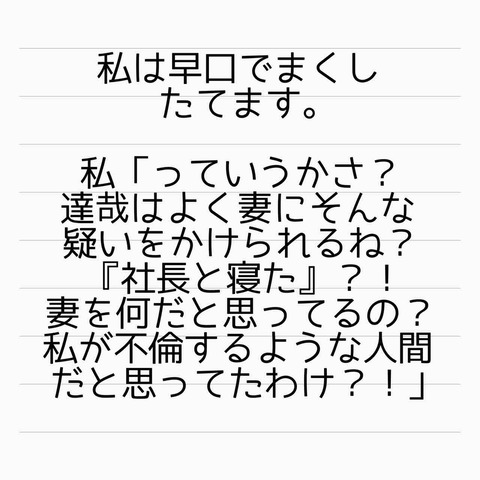 私は早口でまくし
たてます。
私「っていうかさ？
達哉はよく妻にそんな
疑いをかけられるね？
『社長と寝た』？！
妻を何だと思ってるの？
私が不倫するような人間
だと思ってたわけ？！」